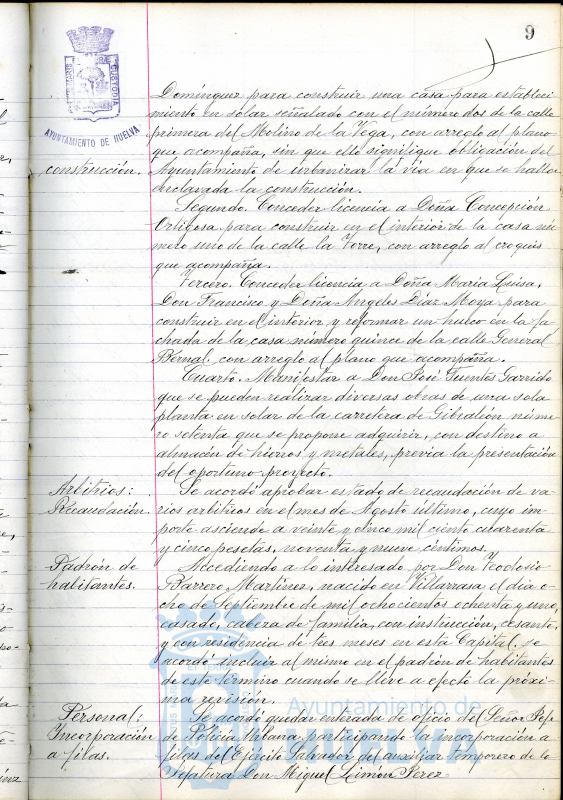 9
PORTUS MARIS ET TERRAE CUSTODIA
AYUNTAMIENTO DE HUELVA
construcción.
Domínguez para construir una casa para estableci
miento en solar señalado con el número dos de la calle
primera del Molino de la Vega, con arreglo al plano
que acompaña, sin que ello signifique obligación del
Ayuntamiento de urbanizar la vía en que se halla
enclavada la construcción.
Segundo. Conceder licencia a Doña Concepción
Ortigosa para construir en el interior de la casa nú
mero uno de la calle la Torre, con arreglo al croquis
que acompaña.
Tercero. Conceder licencia a Doña Maria Luisa,
Don Francisco y Doña Angeles Díaz Moya para
construir en el interior y reformar un hueco en la fa
chada de la casa número quince de la calle General
Bernal, con arreglo al plano que acompaña.
Cuarto. Manifestar a Don José Fuentes Garrido
que se pueden realizar diversas obras de una sola
planta en solar de la carretera de Gibraleón núme
ro setenta que se propone adquirir, con destino a
almacén de hierros y metales, previa la presentación
del oportuno proyecto.
Arbitrios:
Recaudación.
Se acordó aprobar estado de recaudación de va
rios arbitrios en el mes de Agosto último, cuyo im
porte asciende a veinte y cinco mil ciento cuarenta
y cinco pesetas, noventa y nueve céntimos.
Padrón de
habitantes.
Accediendo a lo interesado por Don Teodosio
Barrero Martínez, nacido en Villarrasa el día o-
cho de Septiembre de mil ochocientos ochenta y uno,
casado, cabeza de familia, con instrucción, cesante,
y con residencia de tres meses en esta Capital, se
acordó incluir al mismo en el padrón de habitantes
de este término cuando se lleve a efecto la próxi
ma revisión.
Personal:
Incorporación
a filas.
Se acordó quedar enterada de oficio del Señor Jefe
de Policía Urbana participando la incorporación a
filas del Ejército Salvador del auxiliar temporero de la
Jefatura Don Miguel Limón Perez.
Ayuntamiento de
HUELVA